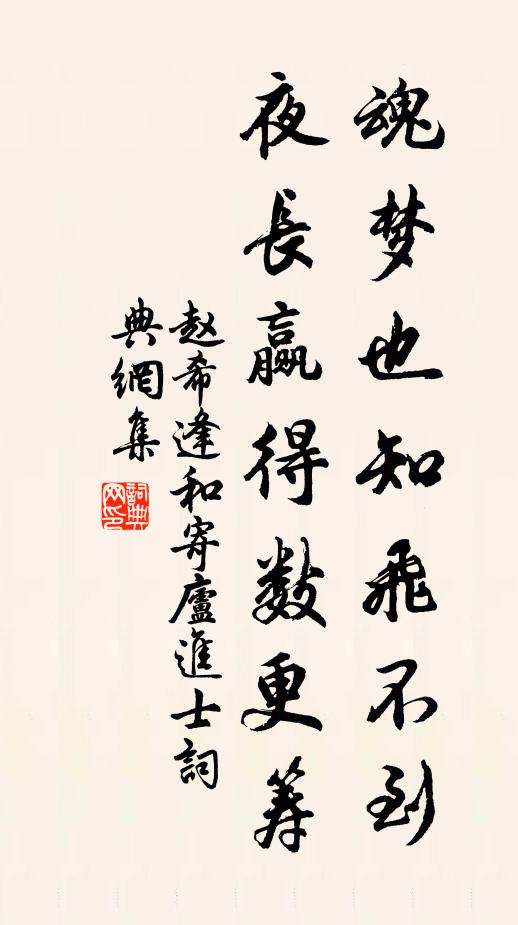 魂梦也知飛不到
夜長赢得数更筹
赵希逢和寄廬進士詞
典網集
詞典网印